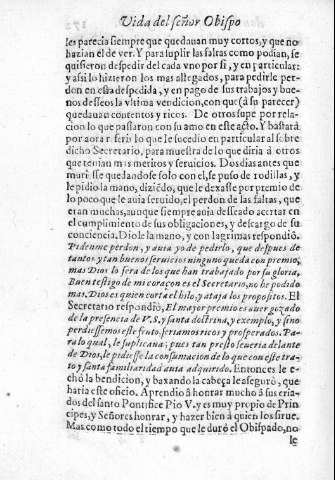 Vida del señor Obispo
les parecia siempre que quedauan muy cortos, y que no
hazian el de ver. Y para suplir las faltas como podian, se
quisieron despedir del cada vno por si, y en particular:
y assi lo hizieron los mas allegados, para pedirle per-
don en esta despedida, y en pago de sus trabajos y bue-
nos desseos la vltima vendicion, con que (à su parecer)
quedauan contentos y ricos. De otros supe por rela-
cion lo que passaron con su amo en este acto. Y bastarà
por aora referir lo que le sucedio en particular al sobre
dicho Secretario, para muestra de lo que diria à otros
que tenian mas meritos y seruicios. Dos dias antes que
muriesse quedandose solo con el, se puso de rodillas, y
le pidio la mano, diziẽdo, que le dexasse por premio de
lo poco que le auia seruido, el perdon de las faltas, que
eran muchas, aunque siempre auia desseado acertar en
el cumplimiento de sus obligaciones, y descargo de su
conciencia. Diole la mano, y con lagrimas respondiò.
Pideme perdon, y auia yo de pedirlo, que despues de
tantos y tan buenos seruicios ninguno queda con premio,
mas Dios lo sera de los que han trabajado por su gloria,
Buen testigo de mi coraçon es el Secretario, no he podido
mas, Dios es quien corta el hilo, y ataja los propositos. El
Secretario respondiò, El mayor premio es auer gozado
de la presencia de V.S. y santa doctrina, y exemplo, y si no
perdiessemos este fruto, seriamos ricos y prosperados. Pa-
ra lo qual, le suplicaua; pues tan presto se veria delante
de Dios, le pidiesse la consumacion de lo que con este tra-
to y santa familiaridad auia adquirido. Entonces le e-
chò la bendicion, y baxando la cabeça le assegurò, que
haria este oficio. Aprendio à honrar mucho à sus cria-
dos del santo Pontifice Pio V. y es muy propio de Prin-
cipes, y Señores honrar, y hazer bien à quien los sirue.
Mas como todo el tiempo que le durò el Obispado, no
le